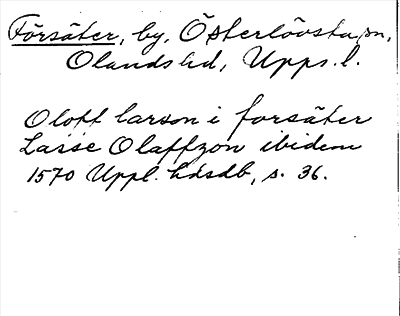 Försäter, by, Österlövsta sn,
Olands hd, Upps. l.
Oloff larson i forsäter
Lasse Olaffzon ibidem
1570 Uppl. hdsdb, s. 36.